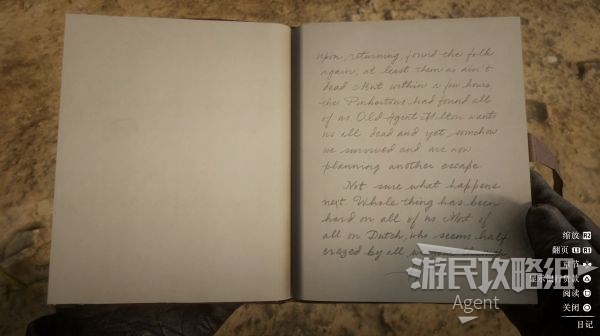 upon, returning, found the folk
again, at least them as ain't
dead. But within a few hours
the Pinkertons had found all
of us. Old Agent Milton wants
us all dead and yet somehow
we survived and are now
planning another escape
Not sure what happens
next. Whole thing has been
hard on all of us. Most of
all on Dutch, who seems half
crazed by all
游民攻略组
Agent
缩放 R2
翻页 L1 R1
阅读
关闭
日记